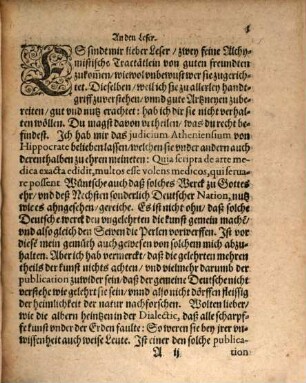 An den Leser.
ES sindt mir lieber Leser / zwey feine Alchy-
mistische Tractätlein von guten freundten
zukom̃en / wiewol unbewust wer sie zugerich-
tet. Dieselben / weil ich sie zu allerley handt-
griff zuverstehen / unnd gute Artzneyen zube-
reiten / gut und nutz erachtet: hab ich dir sie nicht verhal-
ten wöllen. Du magst davon urtheilen / was du recht be-
findest. Ich hab mir das judicium Atheniensium von
Hippocrate belieben lassen / welchen sie under andern auch
derenthalben zu ehren meineten: Quia scripta de arte me-
dica exacta edidit, multos esse volens medicos, qui serua-
re possent Wüntsche auch daß solches Werck zu Gottes
ehr / und deß Nechsten sonderlich Deutscher Nation, nutz
vnices angesehen / gereiche. Es ist nicht ohn / daß solche
Deutsche werck den ungelehrten die kunst gemein mache /
und also gleich den Sewen die Perlen vorwerffen. Ist vor
diese mein gemüth auch gewesen von solchem mich abzu-
halten. Aber ich hab vermerckt / daß die gelehrten mehren
theils der kunst nichts achten / und vielmehr darumb der
publication zuwider sein / daß der gemeine Deutsche nicht
verstehe wie gelehrt sie sein / unnd also nicht dörffen fleissig
der heimlichkeit der natur nachforschen. Wolten lieber /
wie die albern heintzen in der Dialectic, daß alle scharpf-
fe kunst under der Erden faulte: So weren sie bey irer un-
wissenheit auch weise Leute. Ist einer den solche publica-
A ij tion